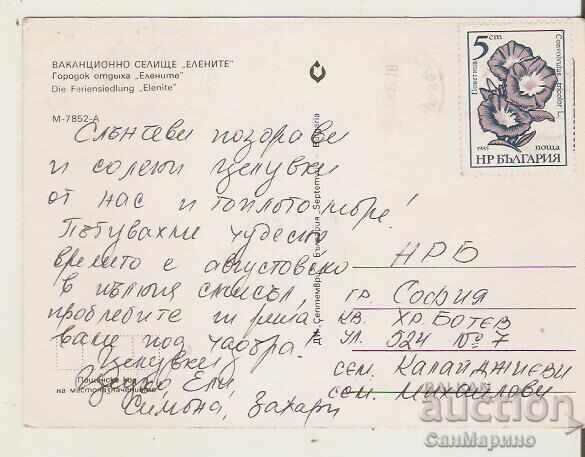 ВАКАНЦИОННО СЕЛИЩЕ "ЕЛЕНИТЕ"
Городок отдыха „Елените"
Die Feriensiedlung „Elenite"
М-7852-А
Слънчеви поздрави
и солени целувки
от нас и топлото море!
Пътувахме чудесно
времето е августовско
в пълния смисъл,
проблемите ги
ваме под чадъра!
Целувки:
Ели,
Симона, Захари
Пощенски код
на местоназначението
ДИ „Септември" България „Septemvri" Bulgaria
5 ст
Поветица
Convolvulus tricolor L.
1985
поща
НР БЪЛГАРИЯ
НРБ
гр. София
кв. Хр. Ботев
ул. 524 № 7
сем. Калайджиеви
сем. Михайлови
BALKAN
auction
СанМарино